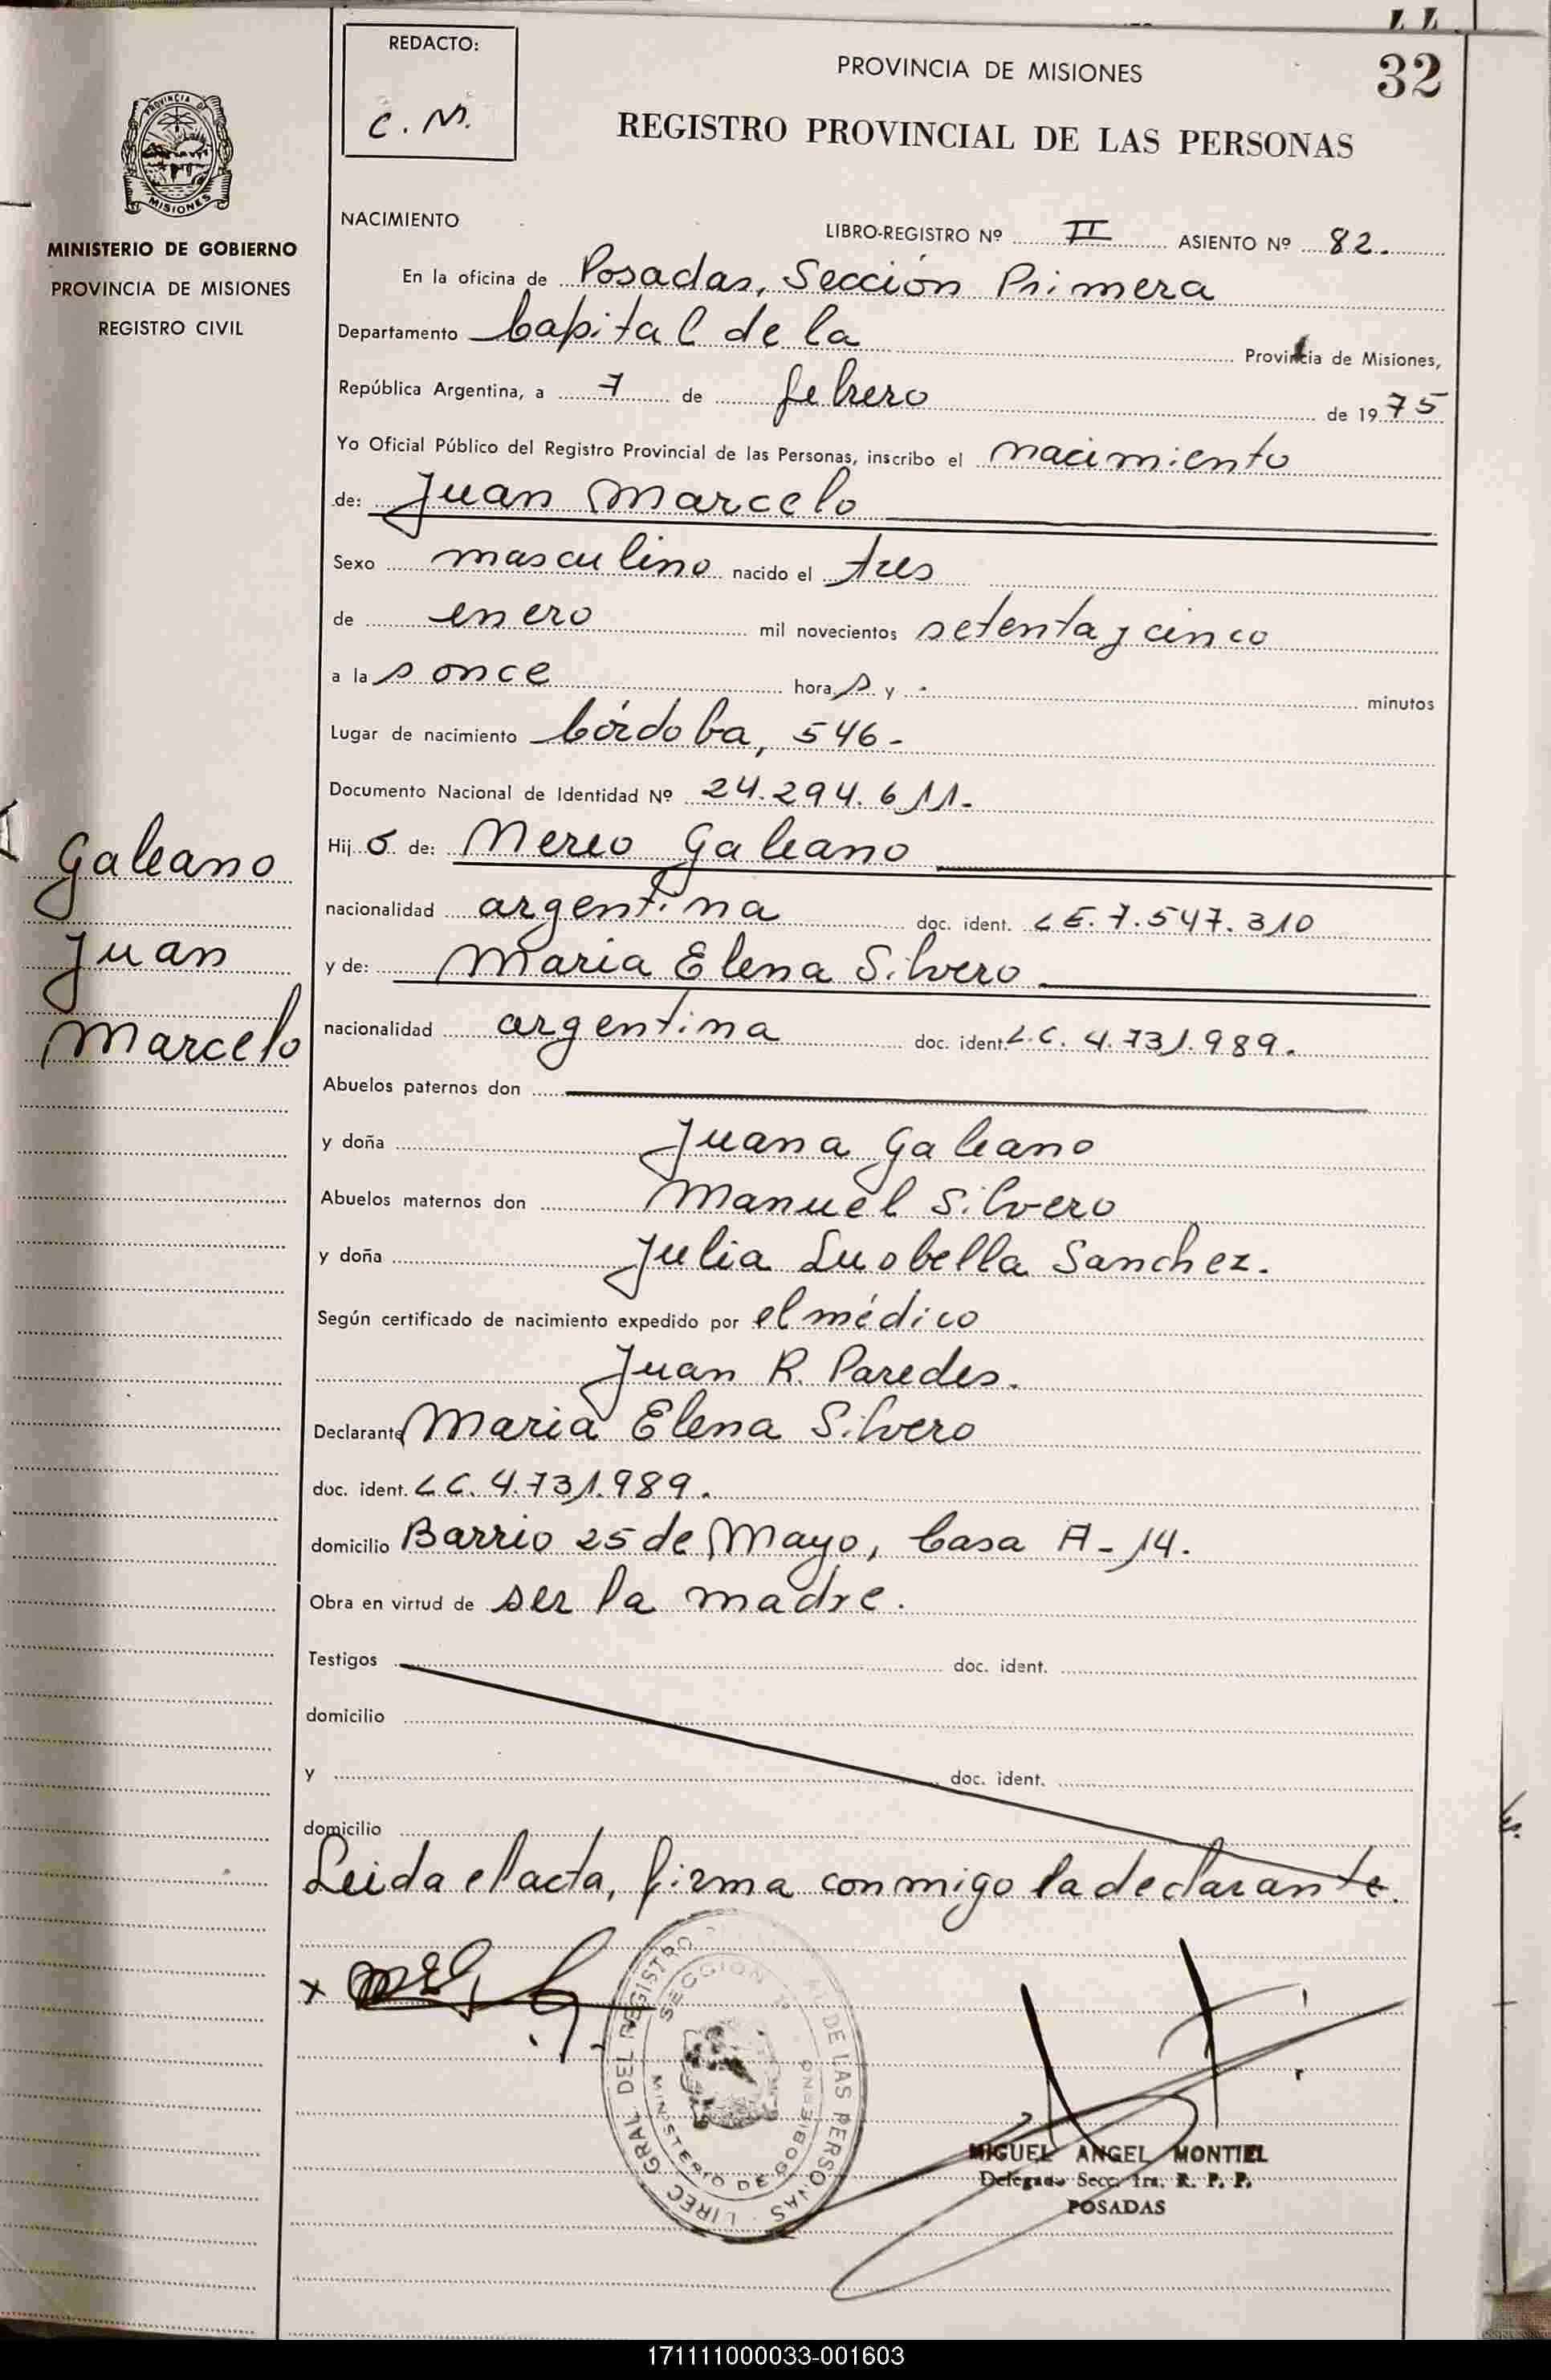 REDACTO:
C. M.
PROVINCIA DE MISIONES
32
REGISTRO PROVINCIAL DE LAS PERSONAS
PROVINCIA DE
MISIONES
MINISTERIO DE GOBIERNO
PROVINCIA DE MISIONES
REGISTRO CIVIL
NACIMIENTO
LIBRO-REGISTRO Nº II ASIENTO Nº 82.
En la oficina de Posadas, Sección Primera
Departamento Capital de la Provincia de Misiones,
República Argentina, a 7 de febrero de 1975
Yo Oficial Público del Registro Provincial de las Personas, inscribo el nacimiento
de: Juan Marcelo
Sexo masculino nacido el tres
de enero mil novecientos setenta y cinco
a las once horas y . minutos
Lugar de nacimiento Córdoba, 546-
Documento Nacional de Identidad Nº 24.294.611-
Hijo de: Mereo Galeano
nacionalidad argentina doc. ident. LE. 7.547.310
y de: Maria Elena Silvero
nacionalidad argentina doc. ident. L.C. 4.731.989.
Galeano
Juan
Marcelo
Abuelos paternos don
y doña Juana Galeano
Abuelos maternos don Manuel Silvero
y doña Julia Luobella Sanchez.
Según certificado de nacimiento expedido por el médico
Juan R. Paredes.
Declarante Maria Elena Silvero
doc. ident. LC. 4.731.989.
domicilio Barrio 25 de Mayo, Casa A-14.
Obra en virtud de ser la madre.
Testigos doc. ident.
domicilio
y doc. ident.
domicilio
Leida el acta, firma conmigo la declarante.
DIREC GRAL DEL REGISTRO DE LAS PERSONAS
SECCION 1º
MINISTERIO DE GOBIERNO
MIGUEL ANGEL MONTIEL
Delegado Secc. 1ra. R. P. P.
POSADAS
171111000033-001603